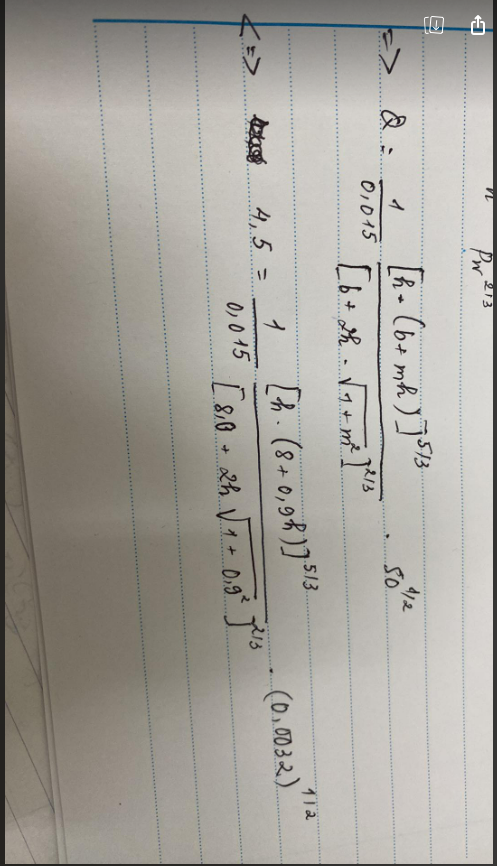 n Pw^2/3
=> Q = 1/0,015 [h · (b + mh)]^5/3 / [b + 2h · √1+m²]^2/3 · S0^1/2
<=> 4,5 = 1/0,015 [h · (8 + 0,9h)]^5/3 / [8,0 + 2h √1 + 0,9²]^2/3 · (0,0032)^1/2